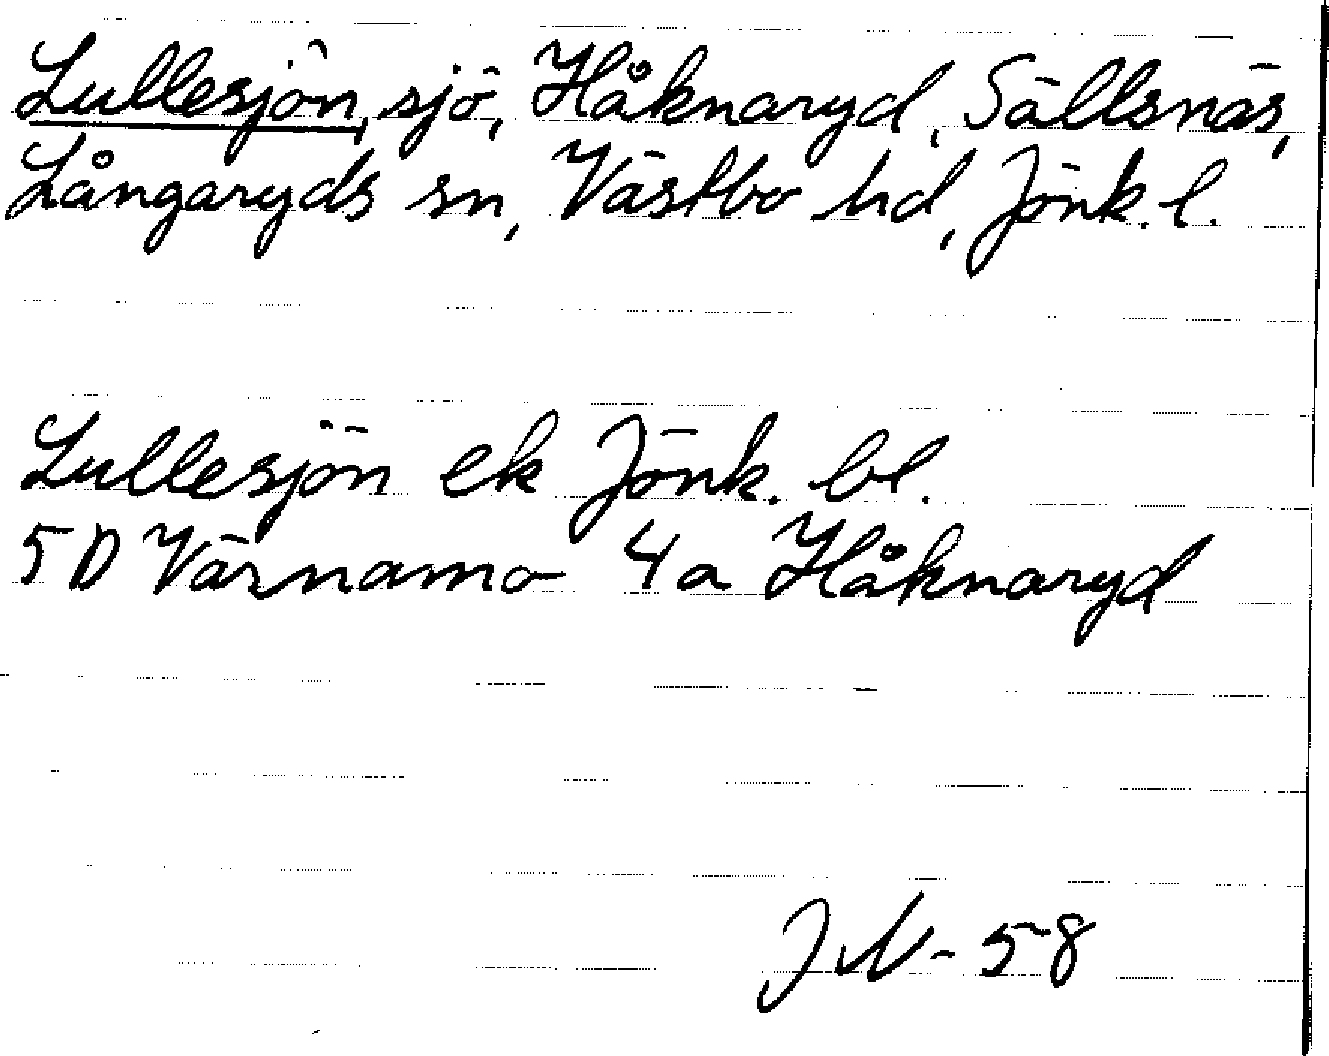 Lullesjön, sjö, Håknaryd, Sällsnäs,
Långaryds sn, Västbo hd, Jönk. l.
Lullesjön ek Jönk. bl.
5D Värnamo 4a Håknaryd
-58